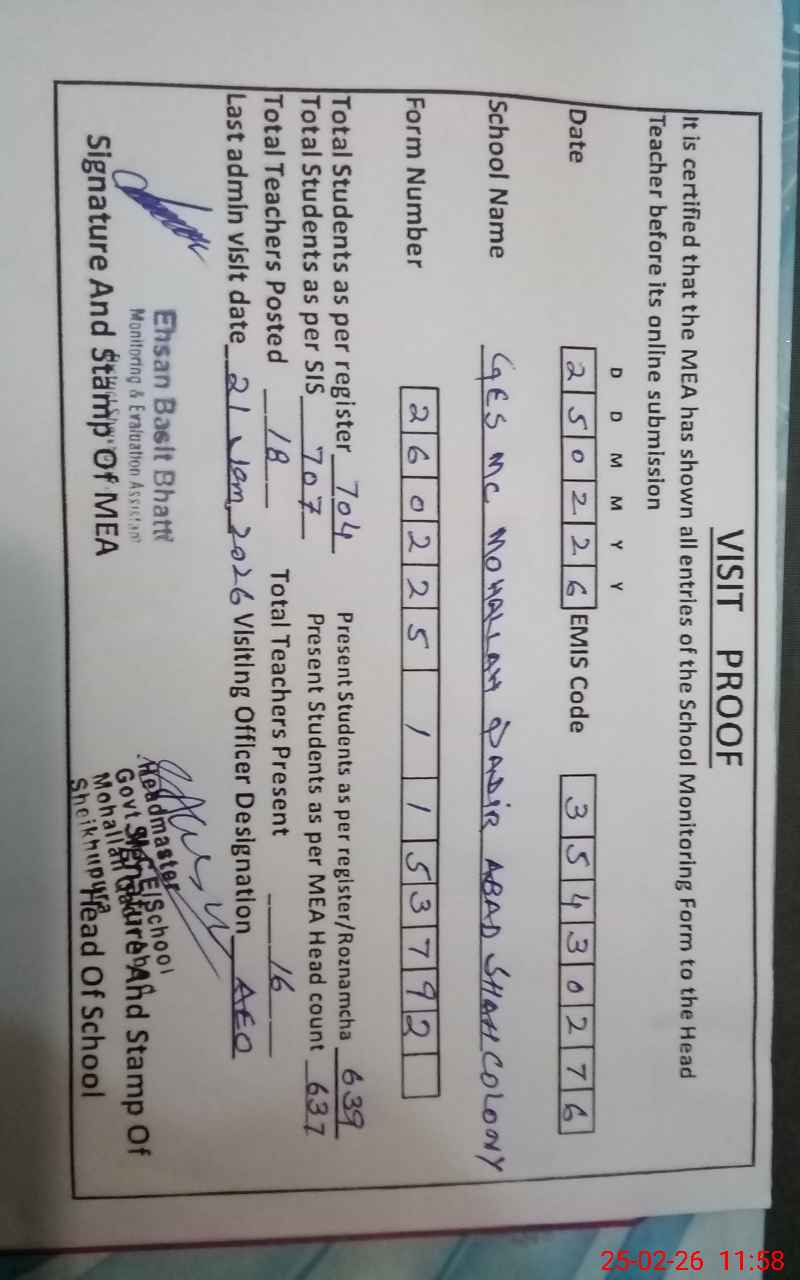 VISIT PROOF
It is certified that the MEA has shown all entries of the School Monitoring Form to the Head
Teacher before its online submission
D D M M Y Y
Date 250226 EMIS Code 35430276
School Name GES MC MOHALLAH QADIR ABAD SHAH COLONY
Form Number 2602251153792
Total Students as per register 704 Present Students as per register/Roznamcha 639
Total Students as per SIS 707 Present Students as per MEA Head count 637
Total Teachers Posted 18 Total Teachers Present 16
Last admin visit date 21 Jan, 2026 Visiting Officer Designation AEO
Ehsan Basit Bhatti
Monitoring & Evaluation Assistant
Signature And Stamp Of MEA
Headmaster
Govt. M.C E/School
Mohallah
Sheikhupura
Signature And Stamp Of
Head Of School
25-02-26 11:58